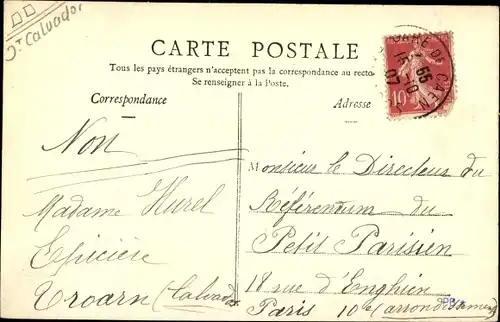 Dt Calvados
CARTE POSTALE
Tous les pays étrangers n'acceptent pas la correspondance au recto
Se renseigner à la Poste.
Correspondance
Adresse
GARE DE CAEN
10
Non
Madame Hurel
Epicière
Troarn (Calvados
Monsieur le Directeur du
Référendum du
Petit Parisien
18 rue d'Enghien
Paris 10e (arrondissement